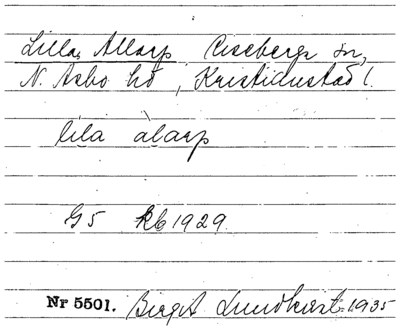 Lilla Allarp Riseberga sn,
N. Åsbo hd, Kristianstad l.
lila alarp
G5 kb 1929.
Nr 5501. Birgit Lundkvist 1935